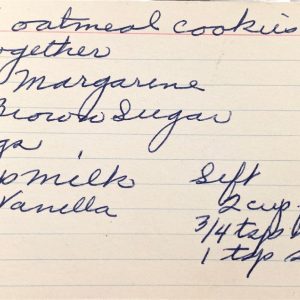 oatmeal cookies
together
Margarine
Brown Sugar
gs
milk
Vanilla
Sift
2 cup
3/4 tsp
1 tsp s